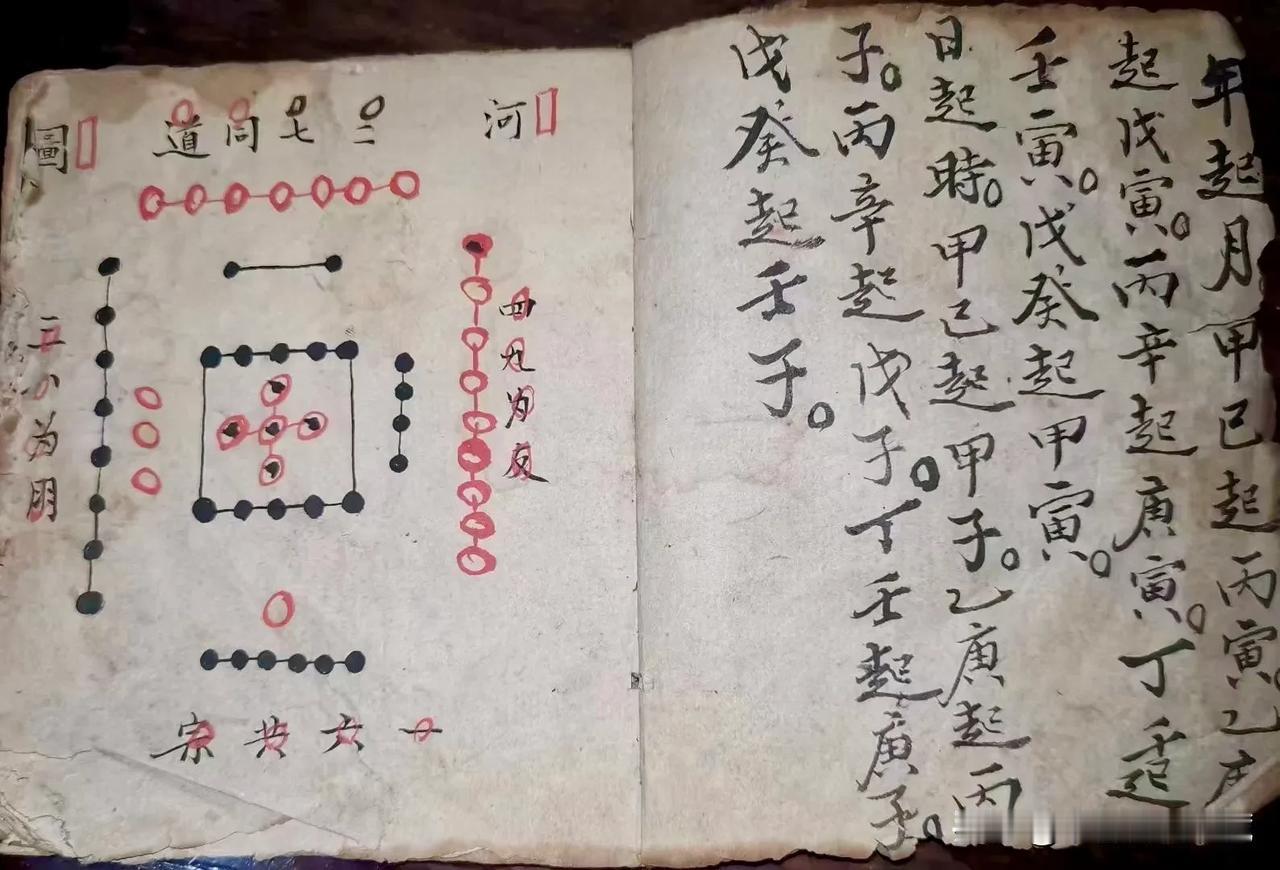 年起月甲己起丙寅。乙庚
起戊寅。丙辛起庚寅。丁壬起
壬寅。戊癸起甲寅。
日起時。甲己起甲子。乙庚起丙
子。丙辛起戊子。丁壬起庚子。
戊癸起壬子。
河
二七同道
圖
四九为友
三八为朋
一六共宗